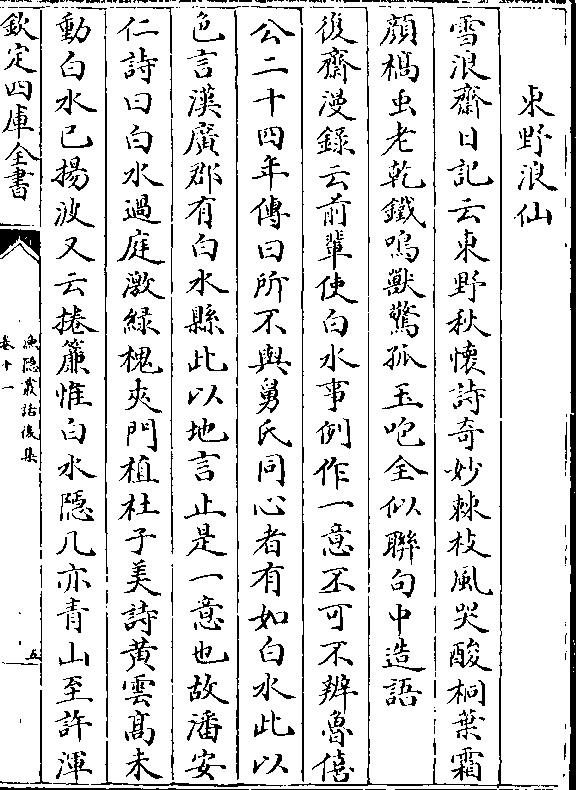 東野浪仙
雪浪齋日記云東野秋懷詩奇妙棘枝風哭酸桐葉霜
顔槁虫老乾鐵鳴獸驚孤玉咆全似聯句中造語
復齋漫錄云前輩使白水事例作一意不可不辨魯僖
公二十四年傳曰所不與舅氏同心者有如白水此以
色言漢廣郡有白水縣此以地言止是一意也故潘安
仁詩曰白水過庭激綠槐夾門植杜子美詩黄雲髙未
動白水已揚波又云捲簾惟白水隱几亦青山至許渾
欽定四庫全書
漁隱叢話後集
卷十一
五